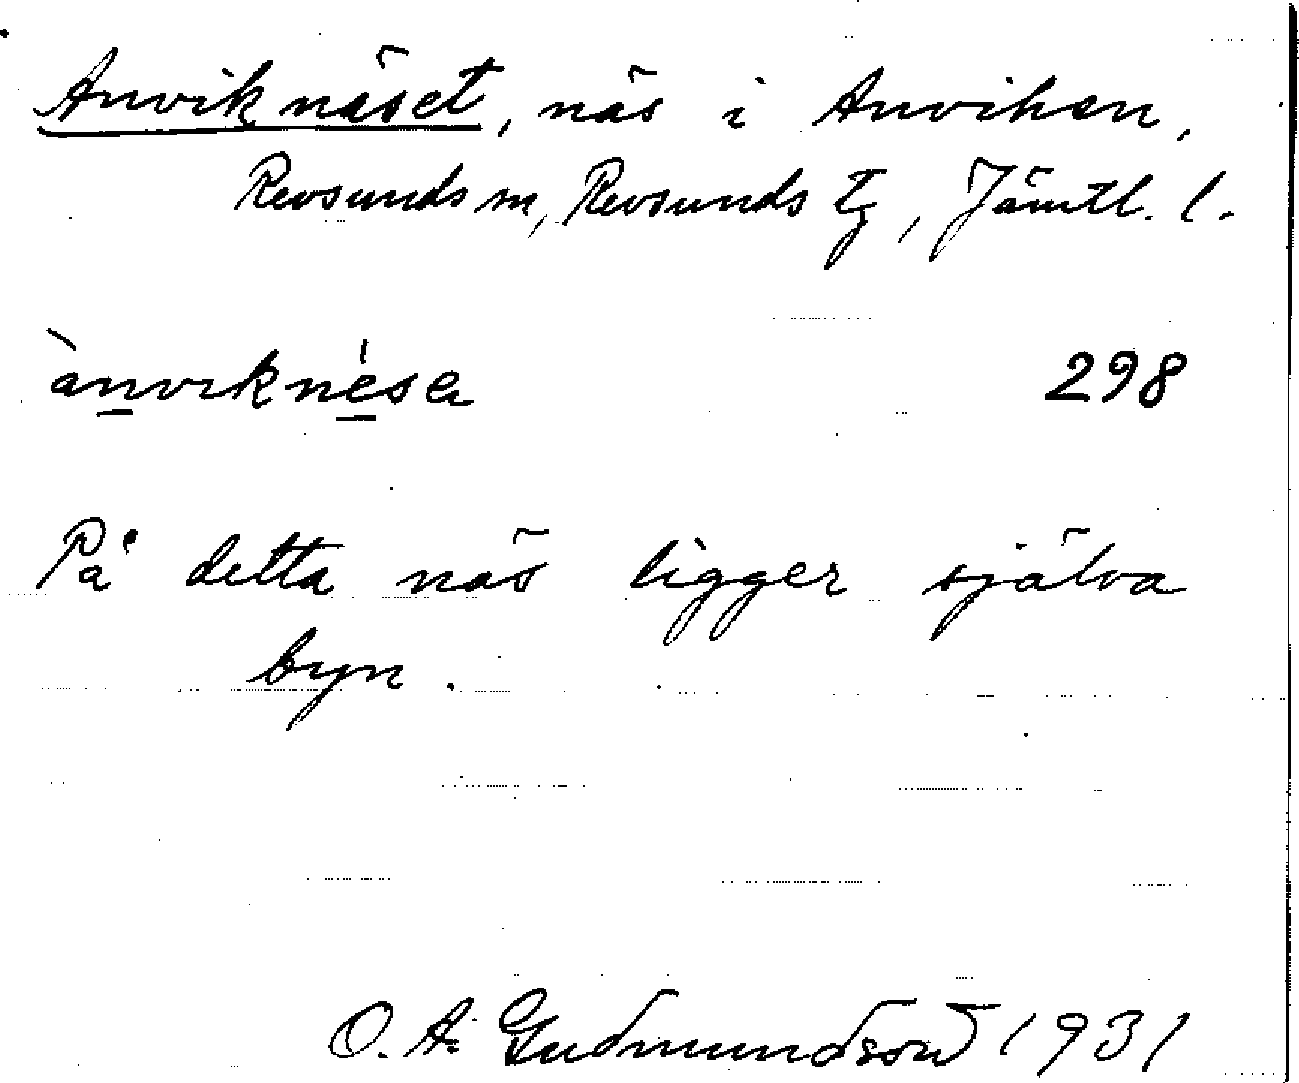 Anviknäset, näs i Anviken,
Revsunds sn, Revsunds tg, Jämtl. l.
ànviknésa 298
På detta näs ligger själva
byn.
O. A. Gudmundsson 1931